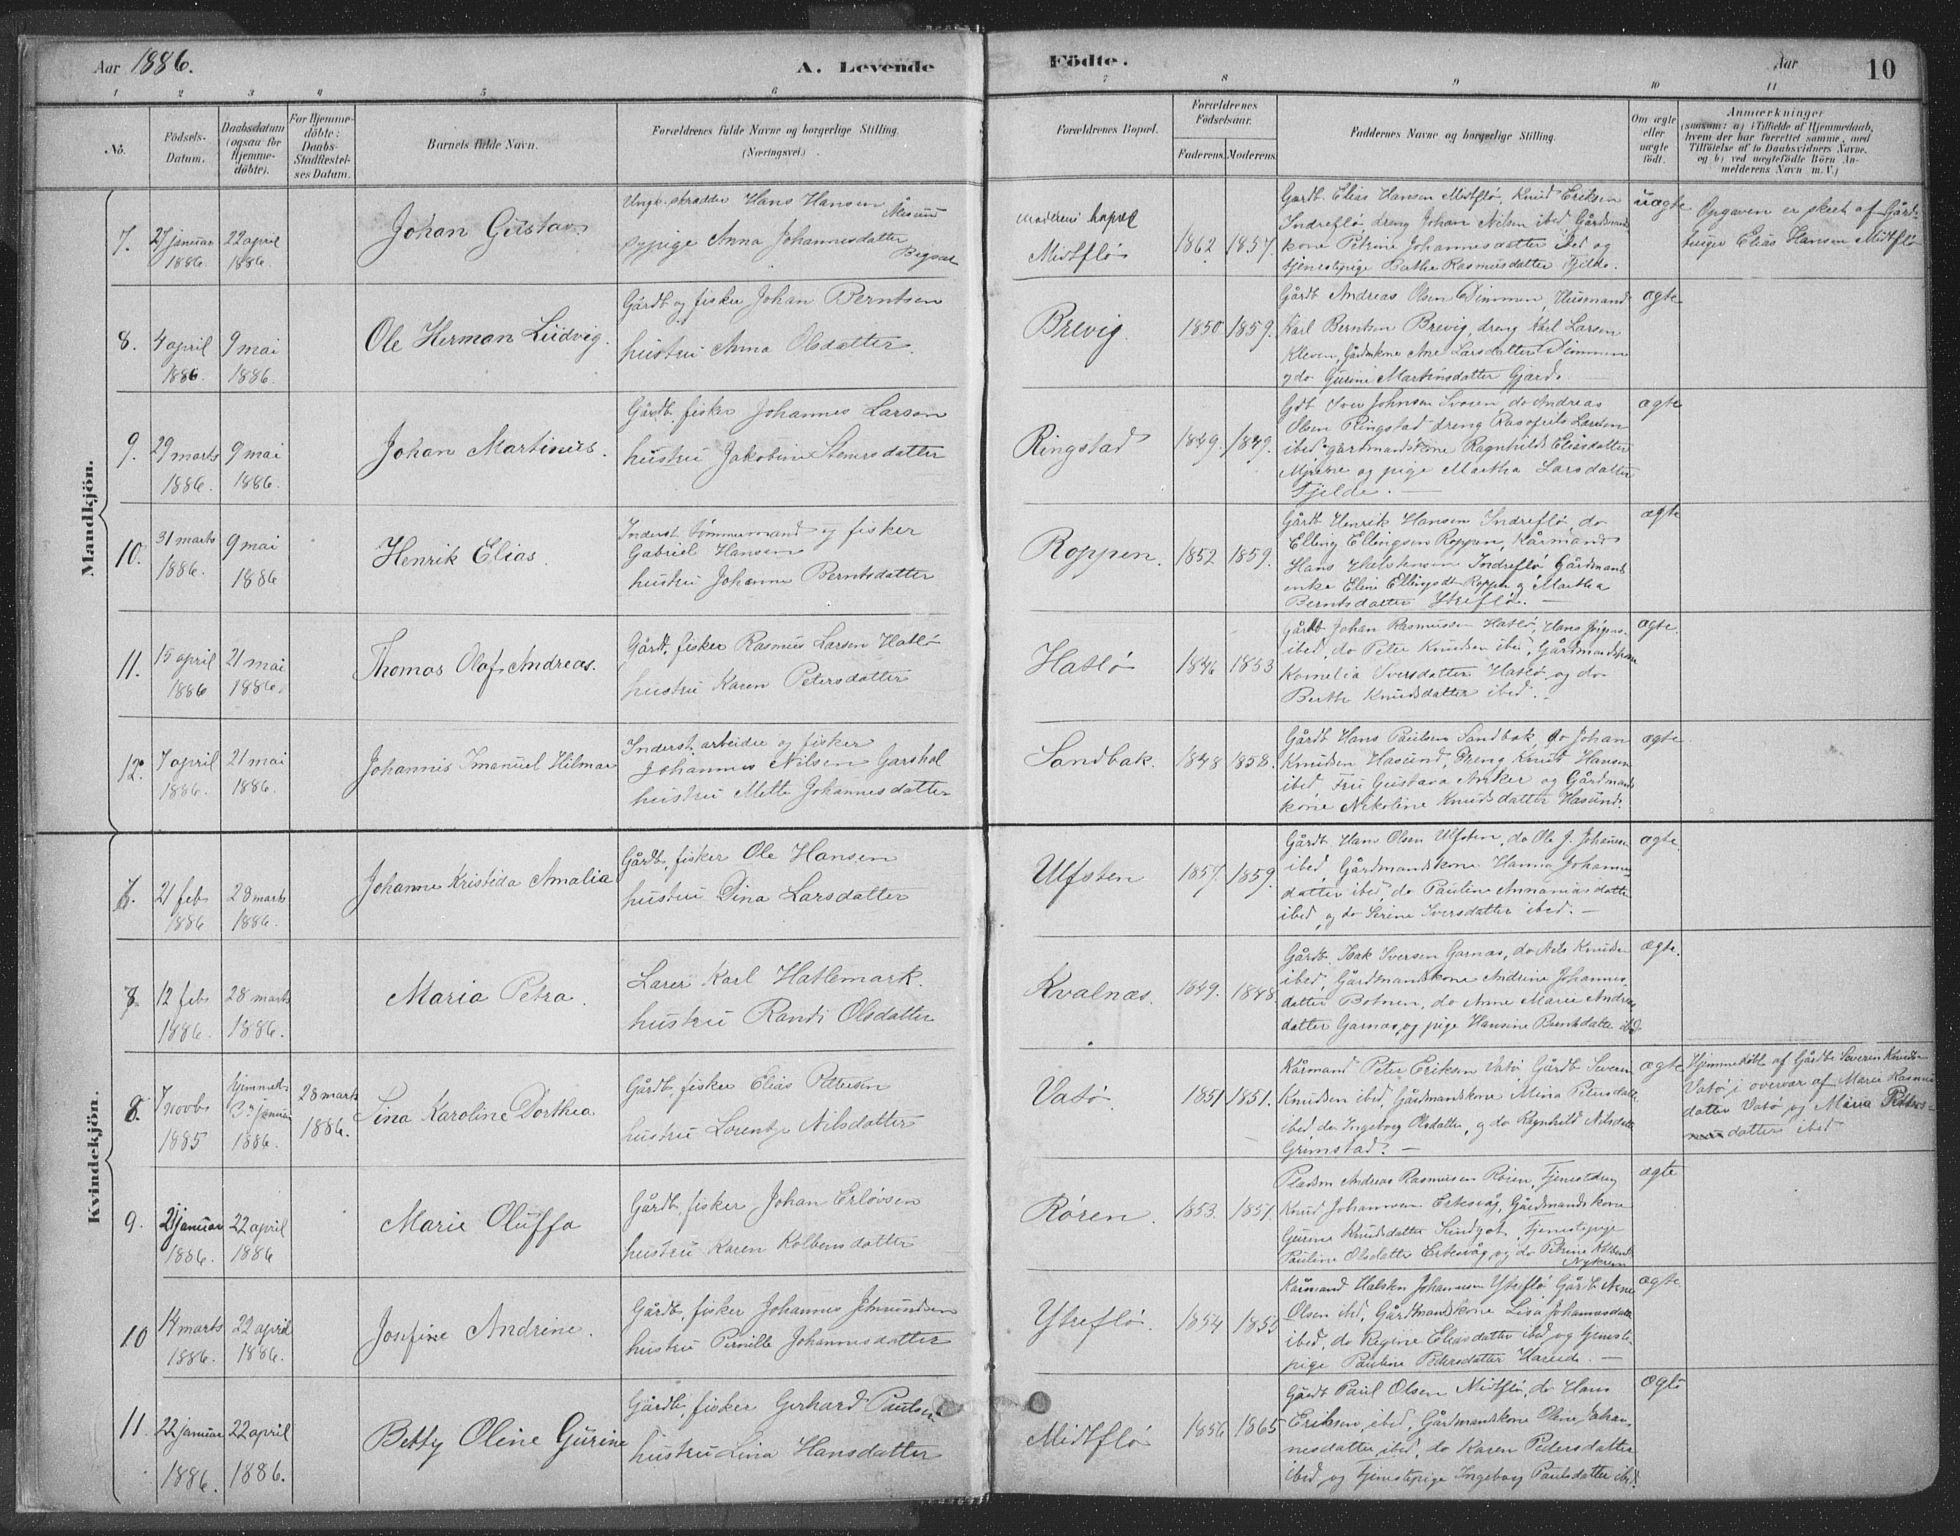 Aar 1886.
A. Levende
Födte.
Aar
10
1 2 3 4 5 6 7 8 9 10 11
No.
Födsels-
Datum.
Daabsdatum
(ogsaa for
Hjemme-
døbte).
For Hjemme-
döbte:
Daabs-
Stadfæstel-
ses Datum.
Barnets fulde Navn.
Forældrenes fulde Navne og borgerlige Stilling.
(Næringsvei).
Forældrenes Bopæl.
Forældrenes
Födselsaar.
Faderens. Moderens.
Faddernes Navne og borgerlige Stilling.
Om ægte
eller
uægte
födt.
Anmærkninger
(saasom: a) i Tilfælde af Hjemmedaab,
hvem der har forrettet samme, med
Tilföielse af to Daabsvidners Navne,
og b) ved uægtefödte Börn An-
melderens Navn m. V.)
Mandkjön.
7.
27 januar
1886.
22 april
1886.
Johan Gustav
Ungk. skrædder Hans Hansen
Ålesund
sypige Anna Johannesdatter
Moderens bopæl
Midtflø
1862. 1857.
Gårdb. Elias Hansen Midtflø, Knud Eriksen
Indreflø, dreng Johan Nilsen ibed, Gårdmands
kone Petrine Johannesdatter ibed og
tjenestepige Berthe Rasmusdatter Fjelde.
uægte
Opgaven er skeet af Gård-
bruger Elias Hansen Midtflø
8.
4 april
1886.
9 mai
1886.
Ole Herman Ludvig.
Gårdb. og fisker Johan Berntsen
hustru Anna Olsdatter.
Brevig.
1850 1859.
Gårdb. Andreas Olsen Dimmen, Husmand
Karl Berntsen Brevig, dreng Karl Larsen
Kleven, Gårdmkone Ane Larsdatter Dimmen
og do Gurine Martinsdatter Gjerde.
ægte
9.
29 marts
1886.
9 mai
1886.
Johan Martinus.
Gårdb. fisker Johannes Larsen
hustru Jakobine Steinersdatter
Ringstad
1849. 1849.
Gdb. Iver Johnsen, do Andreas
Olsen Ringstad dreng Larsen
ibed, gårdmandskone Ragnhild Eliasdatter
og pige Martha Larsdatter
Fjelde. —
ægte
10.
31 marts
1886.
9 mai
1886
Henrik Elias.
Inderst tømmermand og fisker
Gabriel Hansen
hustru Johanne Berntsdatter
Roppen.
1852 1859.
Gårdb. Henrik Hansen Indreflø, do
Elling Ellingsen Roppen, Kårmand
Hans Indreflø Gårdmands
enke Eline Ellingsdtr Roppen og Martha
Berntsdatter Ytreflø. —
ægte
11.
15 april
1886
21 mai
1886.
Thomas Olaf Andreas.
Gårdb. fisker Rasmus Larsen Hatlø
hustru Karen Petersdatter
Hatlø
1846 1853
Gårdb. Johan Rasmussen Hatlø, Hans
ibed, do Peter Knudsen ibed, Gårdmandskone
Kornelia Iversdatter Hatlø og do
Berthe Knudsdatter ibed. —
ægte.
12.
7 april
1886.
21 mai
1886.
Johannis Imanuel Hilmar
Inderst, arbeider og fisker
Johannes Nilsen Garshol
hustru Mette Johannesdatter
Sandbak.
1848 1858.
Gårdb Hans Paulsen Sandbak, do Johan
Knudsen Hasund, Dreng Knut Hansen
ibed Fru Gustava Anker og Gårdmands
kone Nikoline Knudsdatter Hasund.
ægte.
Kvindekjön.
6.
21 feb
1886
28 marts
1886.
Johanne Kristida Amalia
Gårdb. fisker Ole Hansen
hustru Dina Larsdatter
Ulfsten
1857. 1859.
Gårdb. Hans Olsen Ulfsten, do Ole J. Johansen
ibed, Gårdmandskone Hanna Johannes-
datter ibed, do Pauline Annaniasdatter
ibed, og do Serine Iversdatter ibed. —
ægte.
7.
12 feb
1886.
28 marts
1886.
Maria Petra.
Lærer Karl Hatlemark.
hustru Randi Olsdatter
Kvalnæs.
1849. 1848.
Gårdb. Isak Iversen Garnæs, do Nils Knudsen
ibed, Gårdmandskone Andrine Johannes-
datter Botnen, do Anne Marie Andreas
datter Garnæs, og pige Hansine Berntsdatter ibd.
ægte.
8.
7 novb
1885
Hjemmed.
januar
1886.
28 marts
1886.
Tina Karoline Dorthea
Gårdb. fisker Elias Pettersen
hustru Lorentze Nilsdatter
Vatø.
1851 1851.
Kårmand Peter Eriksen Vatø Gårdb Severin
Knudsen ibed, Gårdmandskone Mina Petersdatter
ibed do Ingeborg Olsdatter, og do Ragnhild Nilsdatter
Grimstad. —
ægte
Hjemmedøbt af Gårdb. Severin Knudsen
Vatø i overvær af Marie Rasmus
datter Vatø og Maria Petters-
datter ibed
9.
21 januar
1886.
22 april
1886
Marie Oluffa
Gårdb. fisker Johan Erlovsen
hustru Karen Kolbensdatter
Røren.
1853. 1851.
Pladsm Andreas Rasmussen Røren, Tjenestdreng
Knud Johannesen Eiksvåg, Gårdmandskone
Gurine Knudsdatter, tjenestepige
Pauline Olsdatter Eiksvåg, og do Petrine Kolbens
ægte
10
14 marts
1886.
22 april
1886.
Josefine Andrine.
Gårdb. fisker Johannes Amundsen
hustru Pernille Johannesdatter
Ytreflø.
1854 1855
Kårmand Halsten Johannesen Ytreflø Gårdb Arne
Olsen ibed, Gårdmandskone Lisa Johannesdatter
ibed, do Regine Eliasdatter ibed og tjeneste-
pige Pauline Pedersdatter Hareide. —
ægte.
11.
22 januar
1886.
22 april
1886.
Betty Oline Gurine
Gårdb. fisker Gerhard Paulsen
hustru Lina Hansdatter
Midtflø
1856 1865
Gårdb Paul Olsen Midtflø, do Hans
Eriksen, ibed, Gårdmandskone Oline Johan-
nesdatter ibed, do Karen Pedersdatter
ibed og tjenestepige Ingeborg Paulsdatter ibd.
ægte